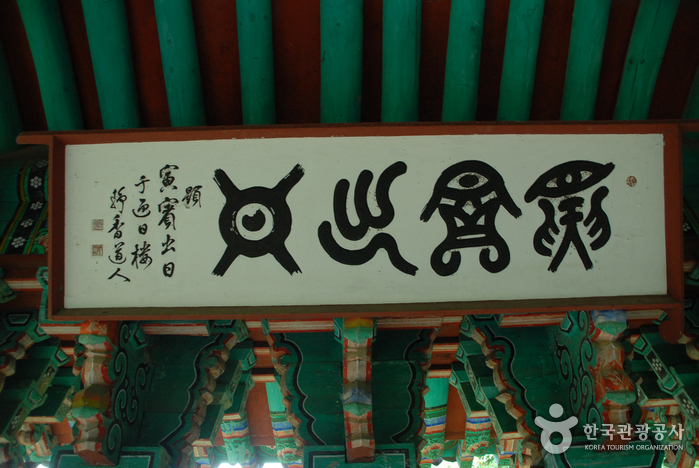 寅賓出日
題
寅賓出日
于迎日樓
靜香道人
한국관광공사
KOREA TOURISM ORGANIZATION